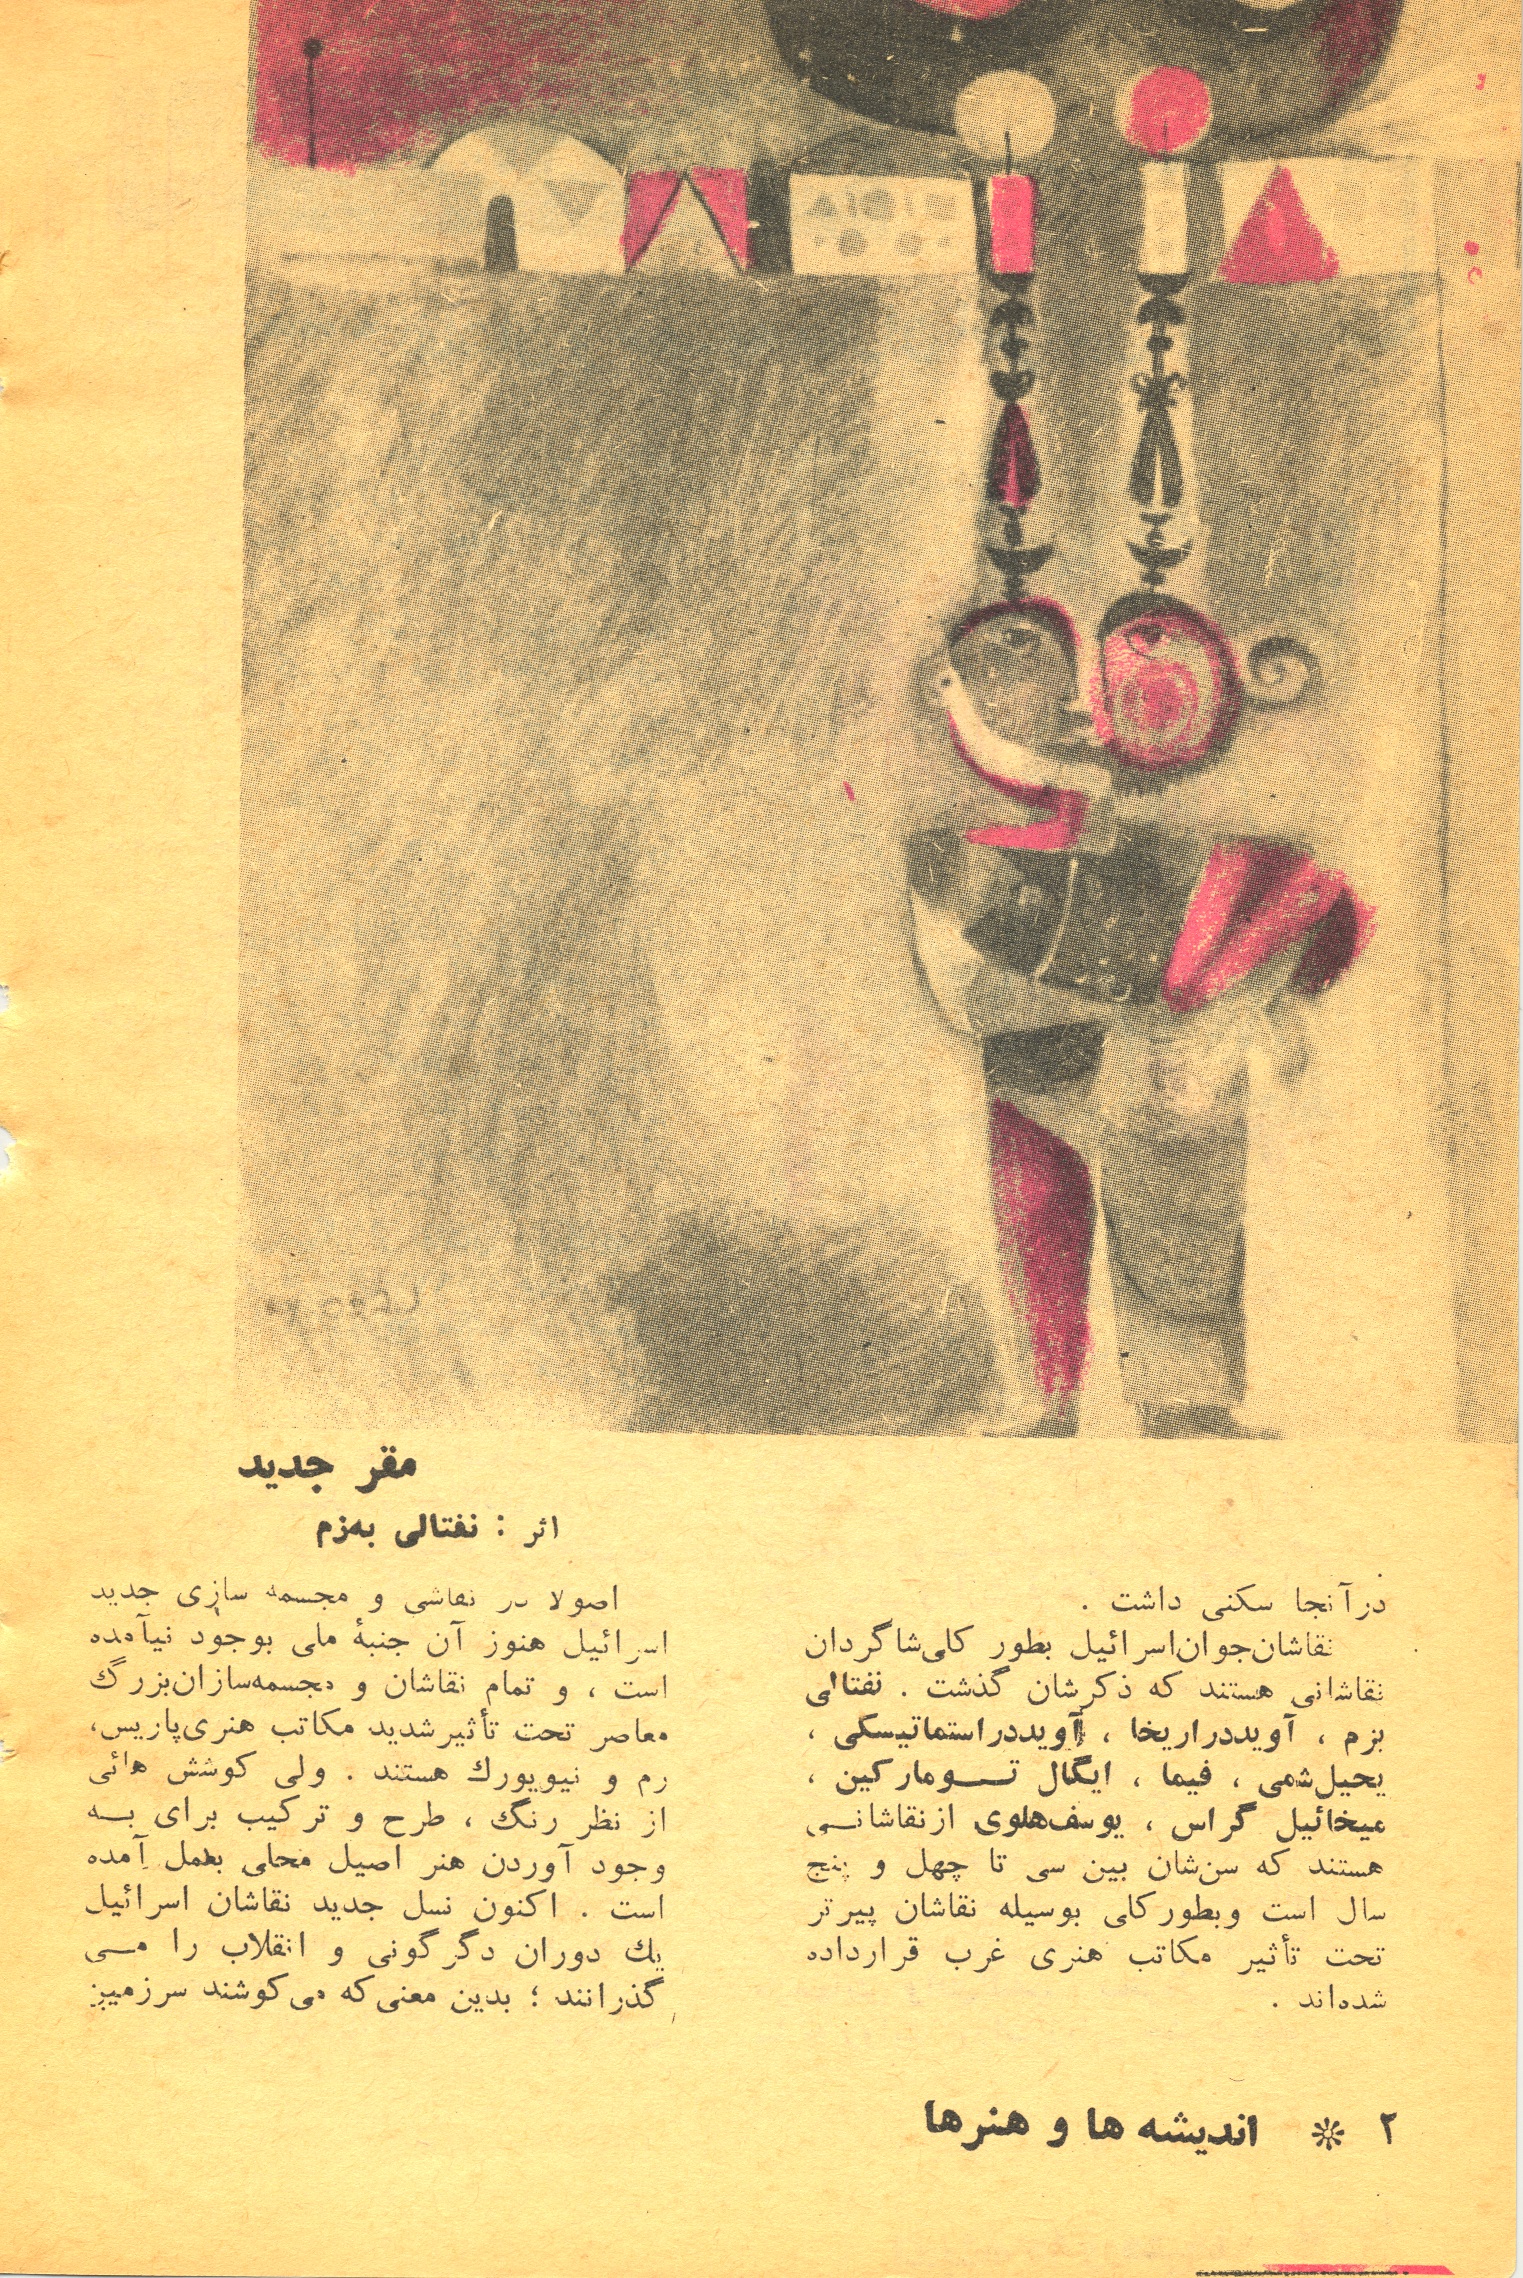 مقر جدید
اثر : نفتالی به‌زم
درآنجا سکنی داشت .
نقاشان‌جوان‌اسرائیل بطور کلی‌شاگردان
نقاشانی هستند که ذکرشان گذشت . نفتالی
بزم ، آویدداریخا ، آویدداستماتیسکی ،
یحیل‌شمی ، فیما ، ایگال تـــومارکین ،
میخائیل گراس ، یوسف‌هلوی ازنقاشانـی
هستند که سن‌شان بین سی تا چهل و پنج
سال است وبطورکلی بوسیله نقاشان پیرتر
تحت تأثیر مکاتب هنری غرب قرارداده
شده‌اند .
اصولا در نقاشی و مجسمه سازی جدید
اسرائیل هنوز آن جنبهٔ ملی بوجود نیآمده
است ، و تمام نقاشان و مجسمه‌سازان‌بزرگ
معاصر تحت تأثیرشدید مکاتب هنری‌پاریس،
رم و نیویورك هستند . ولی کوشش هائی
از نظر رنگ ، طرح و ترکیب برای بـه
وجود آوردن هنر اصیل محلی بعمل آمده
است . اکنون نسل جدید نقاشان اسرائیل
یك دوران دگرگونی و انقلاب را مـی
گذرانند ؛ بدین معنی‌که می‌کوشند سرزمین
۲ ❊ اندیشه ها و هنرها